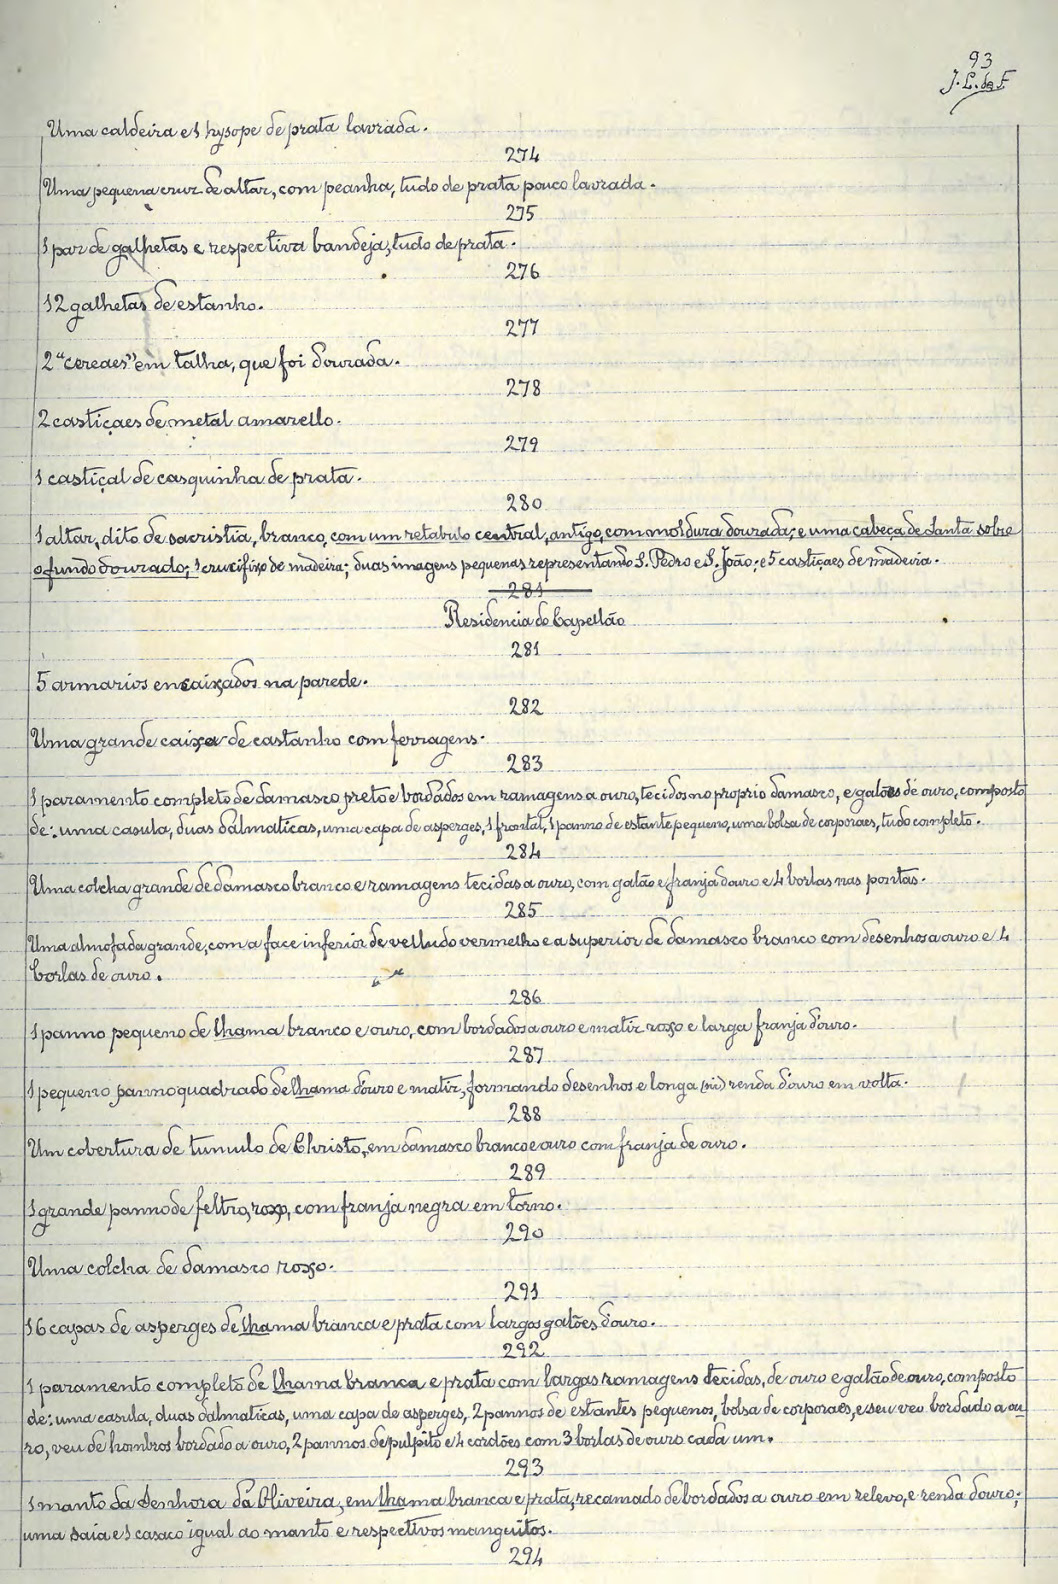 93
J. L. de F
Uma caldeira e 1 hysope de prata lavrada.
274
Uma pequena cruz de altar, com peanha, tudo de prata pouco lavrada.
275
1 par de galhetas e respectiva bandeja, tudo de prata.
276
12 galhetas de estanho.
277
2 "cereaes" em talha, que foi dourada.
278
2 castiçaes de metal amarello.
279
1 castiçal de casquinha de prata.
280
1 altar, dito de sacristia, branco, com um retabulo central, antigo, com moldura dourada, e uma cabeça de santa sobre
o fundo dourado; 1 crucifixo de madeira; duas imagens pequenas representando S. Pedro e S. João; e 5 castiçaes de madeira.
281
Residencia do Capellão
281
5 armarios encaixados na parede.
282
Uma grande caixa de castanho com ferragens.
283
1 paramento completo de damasco preto e bordados em ramagens a ouro, tecidos no proprio damasco, e galões de ouro, composto
de: uma casula, duas dalmaticas, uma capa de asperges, 1 frontal, 1 panno de estante pequeno, uma bolsa de corporaes, tudo completo.
284
Uma colcha grande de damasco branco e ramagens tecidas a ouro, com galão e franja d'ouro e 4 borlas nas pontas.
285
Uma almofada grande, com a face inferior de velludo vermelho e a superior de damasco branco com desenhos a ouro e 4
borlas de ouro.
286
1 panno pequeno de lhama branco e ouro, com bordados a ouro e matiz roxo e larga franja d'ouro.
287
1 pequeno panno quadrado de lhama d'ouro e matiz, formando desenhos e longa (sic) renda d'ouro em volta.
288
Um cobertura de tumulo de Christo, em damasco branco e ouro com franja de ouro.
289
1 grande panno de feltro, roxo, com franja negra em torno.
290
Uma colcha de damasco roxo.
291
16 capas de asperges de lhama branca e prata com largos galões d'ouro.
292
1 paramento completo de lhama branca e prata com largas ramagens tecidas, de ouro e galão de ouro, composto
de: uma casula, duas dalmaticas, uma capa de asperges, 2 pannos de estantes pequenos, bolsa de corporaes, e seu veu bordado a ou
ro, veu de hombros bordado a ouro, 2 pannos de pulpito e 4 cordões com 3 borlas de ouro cada um.
293
1 manto da Senhora da Oliveira, em lhama branca e prata, recamado de bordados a ouro em relevo, e renda d'ouro;
uma saia e 1 casaco igual ao manto e respectivos manguitos.
294